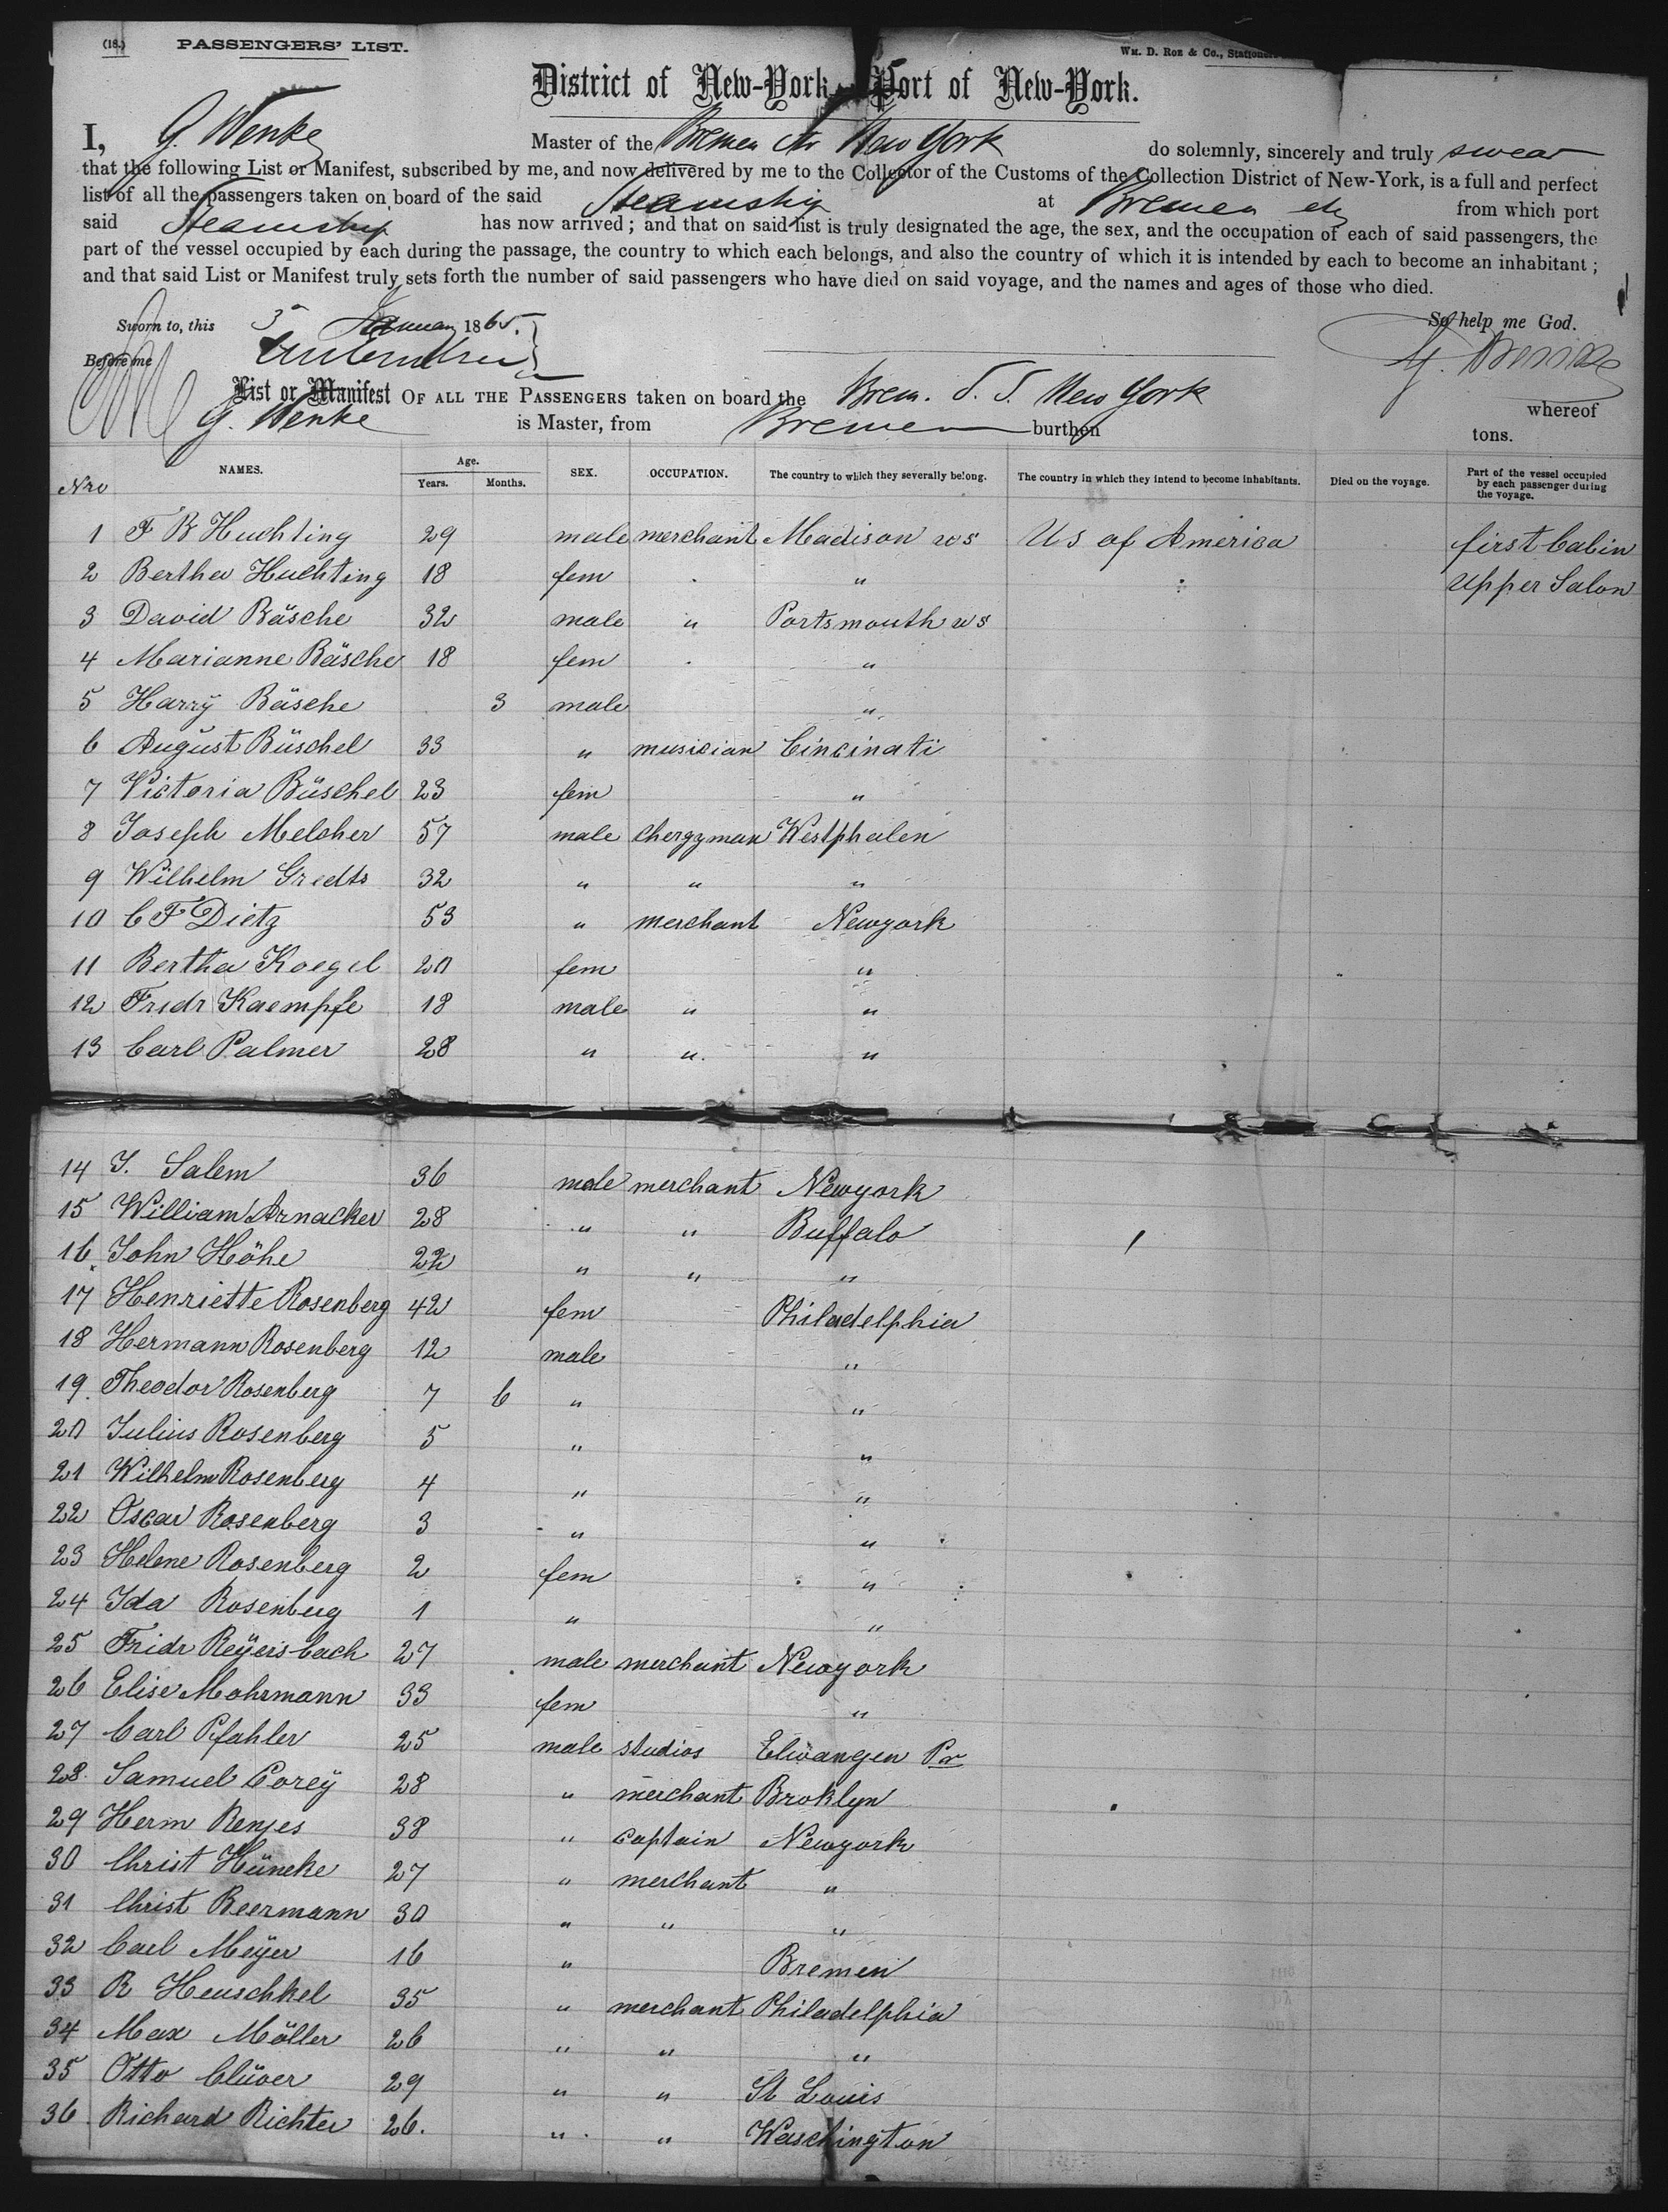 (18.) PASSENGERS' LIST. Wm. D. Roe & Co., Stationers
District of New-York Port of New-York.
I, G. Wenke Master of the Bremen Str New York do solemnly, sincerely and truly swear
that the following List or Manifest, subscribed by me, and now delivered by me to the Collector of the Customs of the Collection District of New-York, is a full and perfect
list of all the passengers taken on board of the said Steamship at Bremen etc from which port
said Steamship has now arrived; and that on said list is truly designated the age, the sex, and the occupation of each of said passengers, the
part of the vessel occupied by each during the passage, the country to which each belongs, and also the country of which it is intended by each to become an inhabitant;
and that said List or Manifest truly sets forth the number of said passengers who have died on said voyage, and the names and ages of those who died.
Sworn to, this 5 January 1865. So help me God.
Before me G. Wenke
List or Manifest OF ALL THE PASSENGERS taken on board the Brem. S. S. New York whereof
G. Wenke is Master, from Bremen burthen tons.
Nro NAMES. Age. Years. Months. SEX. OCCUPATION. The country to which they severally belong. The country in which they intend to become inhabitants. Died on the voyage. Part of the vessel occupied by each passenger during the voyage.
1 F B Huchting 29 male merchant Madison ws US of America first Cabin
2 Bertha Huchting 18 fem " Upper Salon
3 David Bäsche 32 male " Portsmouth ws
4 Marianne Bäsche 18 fem "
5 Harry Bäsche 3 male "
6 August Büschel 33 " musician Cincinati
7 Victoria Büschel 23 fem "
8 Joseph Melcher 57 male chergyman Westphalen
9 Wilhelm Gredts 32 " " "
10 C F Dietz 53 " merchant Newyork
11 Bertha Koegel 20 fem "
12 Fridr Kaempfe 18 male " "
13 Carl Palmer 28 " " "
14 J. Salem 36 male merchant Newyork
15 William Arnacker 28 " " Buffalo
16 John Höhe 22 " " "
17 Henriette Rosenberg 42 fem Philadelphia
18 Hermann Rosenberg 12 male "
19 Theodor Rosenberg 7 6 " "
20 Julius Rosenberg 5 " "
21 Wilhelm Rosenberg 4 " "
22 Oscar Rosenberg 3 " "
23 Helene Rosenberg 2 fem "
24 Ida Rosenberg 1 " "
25 Fridr Reÿersbach 27 male merchant Newyork
26 Elise Mohrmann 33 fem "
27 Carl Pfahler 25 male studios Elwangen Pr
28 Samuel Coreÿ 28 " merchant Broklyn
29 Herm Renjes 38 " captain Newyork
30 Christ Hüneke 27 " merchant "
31 Christ Beermann 30 " " "
32 Carl Meÿer 16 " Bremen
33 R Heuschkel 35 " merchant Philadelphia
34 Max Möller 26 " " "
35 Otto Clüver 29 " " St Louis
36 Richard Richter 26. " " Waschington